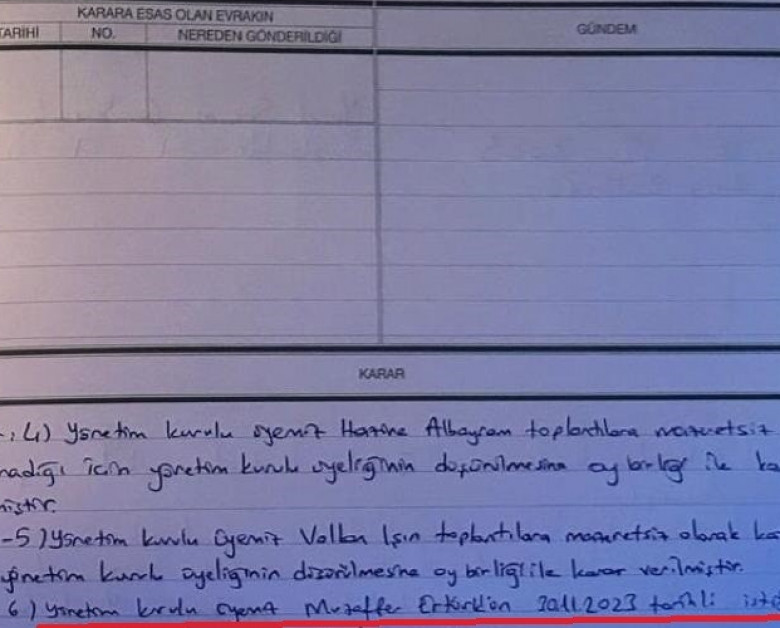 KARARA ESAS OLAN EVRAKIN
TARİHİ NO. NEREDEN GÖNDERİLDİĞİ GÜNDEM
KARAR
4) Yönetim kurulu üyemiz Hazine Albayram toplantılara mazeretsiz
madığı için yönetim kurulu üyeliğinin düşürülmesine oy birliği ile ka
miştir.
-5) Yönetim kurulu üyemiz Volkan Işın toplantılara mazeretsiz olarak ka
yönetim kurulu üyeliğinin düşürülmesine oy birliği ile karar verilmiştir.
6) Yönetim kurulu üyemiz Muzaffer Ertürk'ün 30.11.2023 tarihli istif